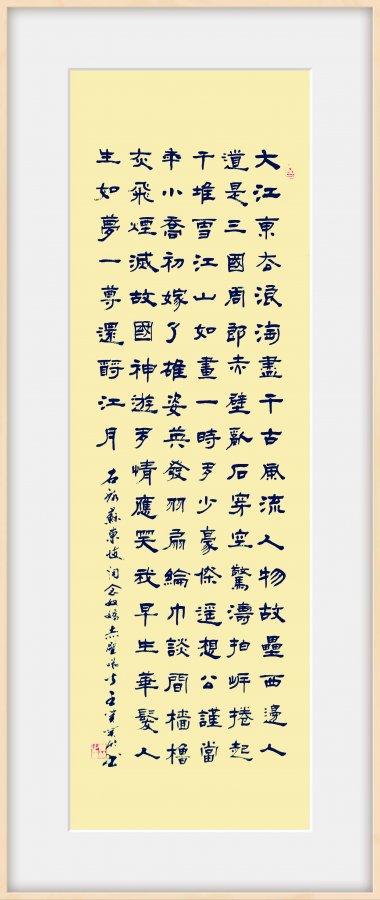 大江東去浪淘盡千古風流人物故壘西邊人
道是三國周郎赤壁亂石穿空驚濤拍岸捲起
千堆雪江山如畫一時多少豪傑遙想公謹當
年小喬初嫁了雄姿英發羽扇綸巾談間檣櫓
灰飛煙滅故國神遊多情應笑我早生華髮人
生如夢一尊還酹江月
右錄蘇東坡詞念奴嬌赤壁懷古